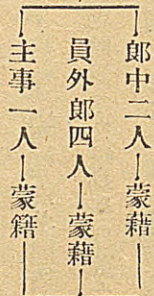 郎中二人—蒙籍—
員外郎四人—蒙藉—
主事一人—蒙籍—